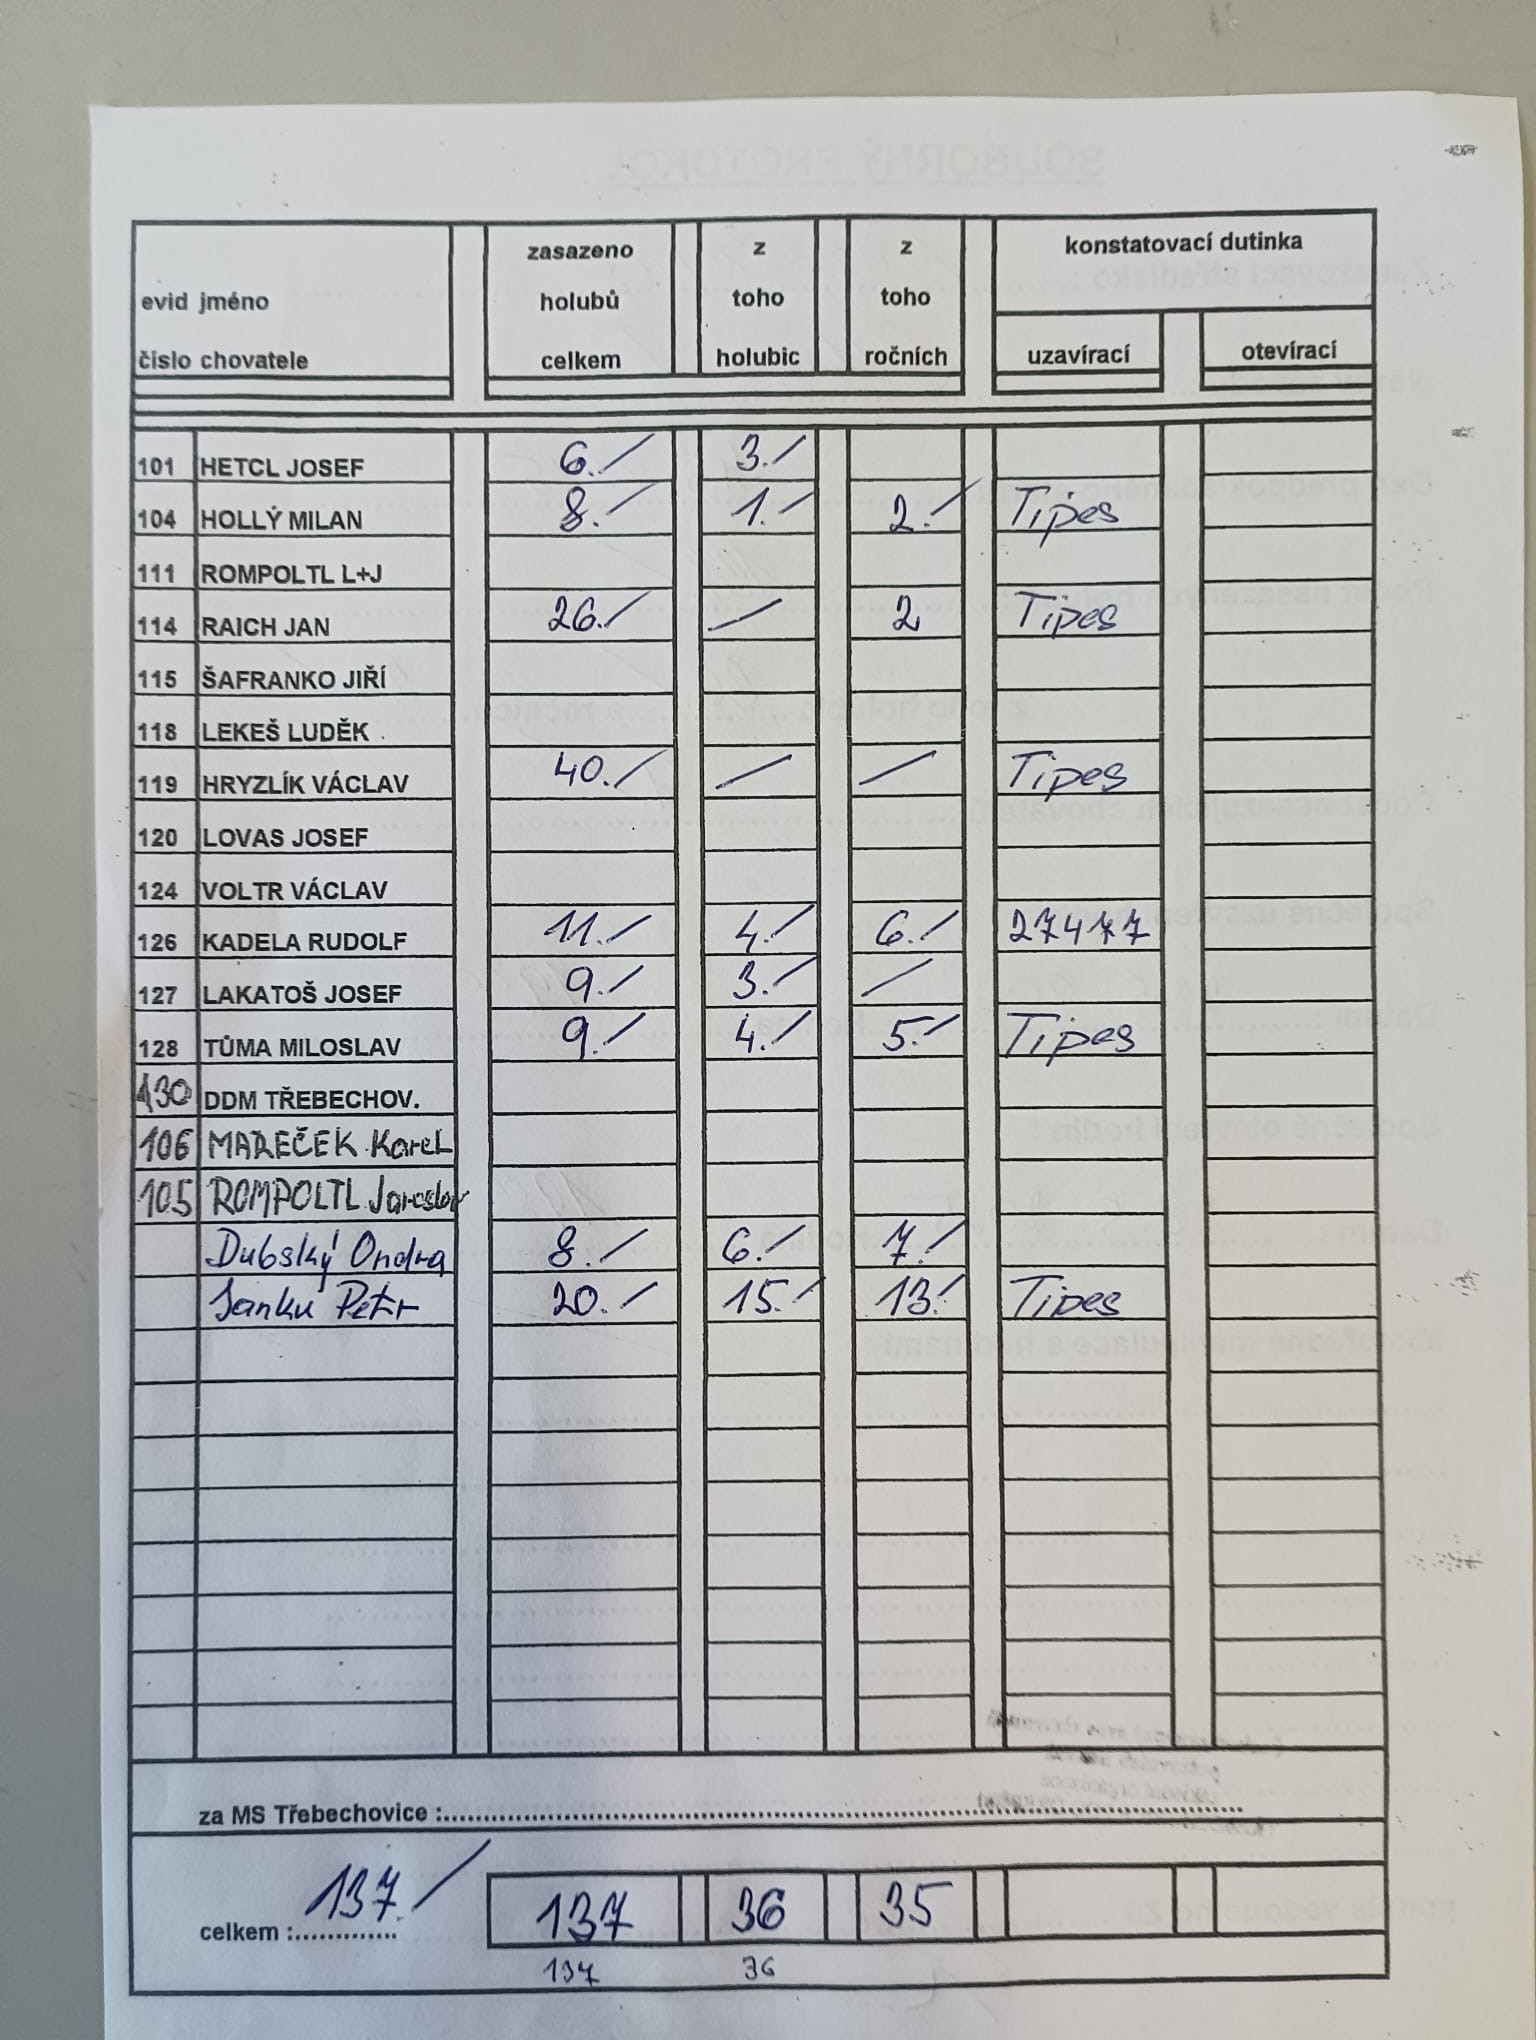 zasazeno z z konstatovací dutinka
evid jméno holubů toho toho
číslo chovatele celkem holubic ročních uzavírací otevírací
101 HETCL JOSEF 6./ 3./
104 HOLLÝ MILAN 8./ 1./ 2./ Tipes
111 ROMPOLTL L+J
114 RAICH JAN 26./ / 2 Tipes
115 ŠAFRANKO JIŘÍ
118 LEKEŠ LUDĚK
119 HRYZLÍK VÁCLAV 40./ / / Tipes
120 LOVAS JOSEF
124 VOLTR VÁCLAV
126 KADELA RUDOLF 11./ 4./ 6./ 27477
127 LAKATOŠ JOSEF 9./ 3./ /
128 TŮMA MILOSLAV 9./ 4./ 5./ Tipes
130 DDM TŘEBECHOV.
106 MAREČEK Karel
105 ROMPOLTL Jaroslav
Dubský Ondra 8./ 6./ 7./
Janků Petr 20./ 15./ 13./ Tipes
za MS Třebechovice :
celkem : 137./ 137 36 35
137 36